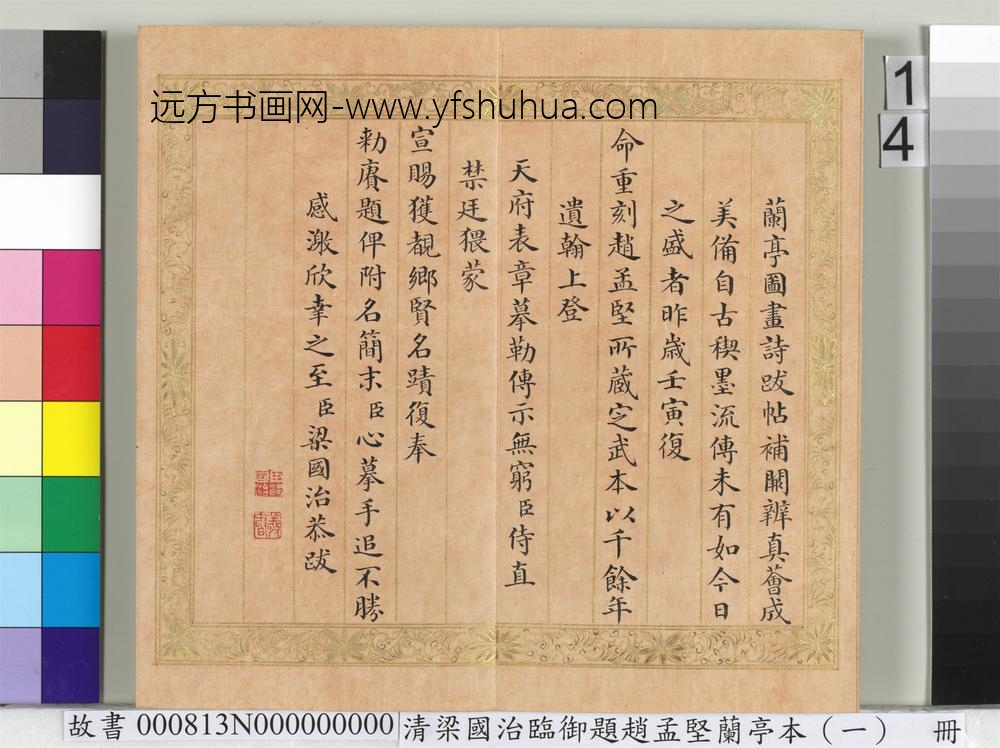 远方书画网-www.yfshuhua.com
1
4
蘭亭圖畫詩跋帖補闕辨真薈成
美備自古稧墨流傳未有如今日
之盛者昨歲壬寅復
命重刻趙孟堅所藏定武本以千餘年
遺翰上登
天府表章摹勒傳示無窮臣侍直
禁廷猥蒙
宣賜獲覩鄉賢名蹟復奉
勑賡題俾附名簡末臣心摹手追不勝
感激欣幸之至臣梁國治恭跋
故書 000813N000000000 清梁國治臨御題趙孟堅蘭亭本（一） 冊